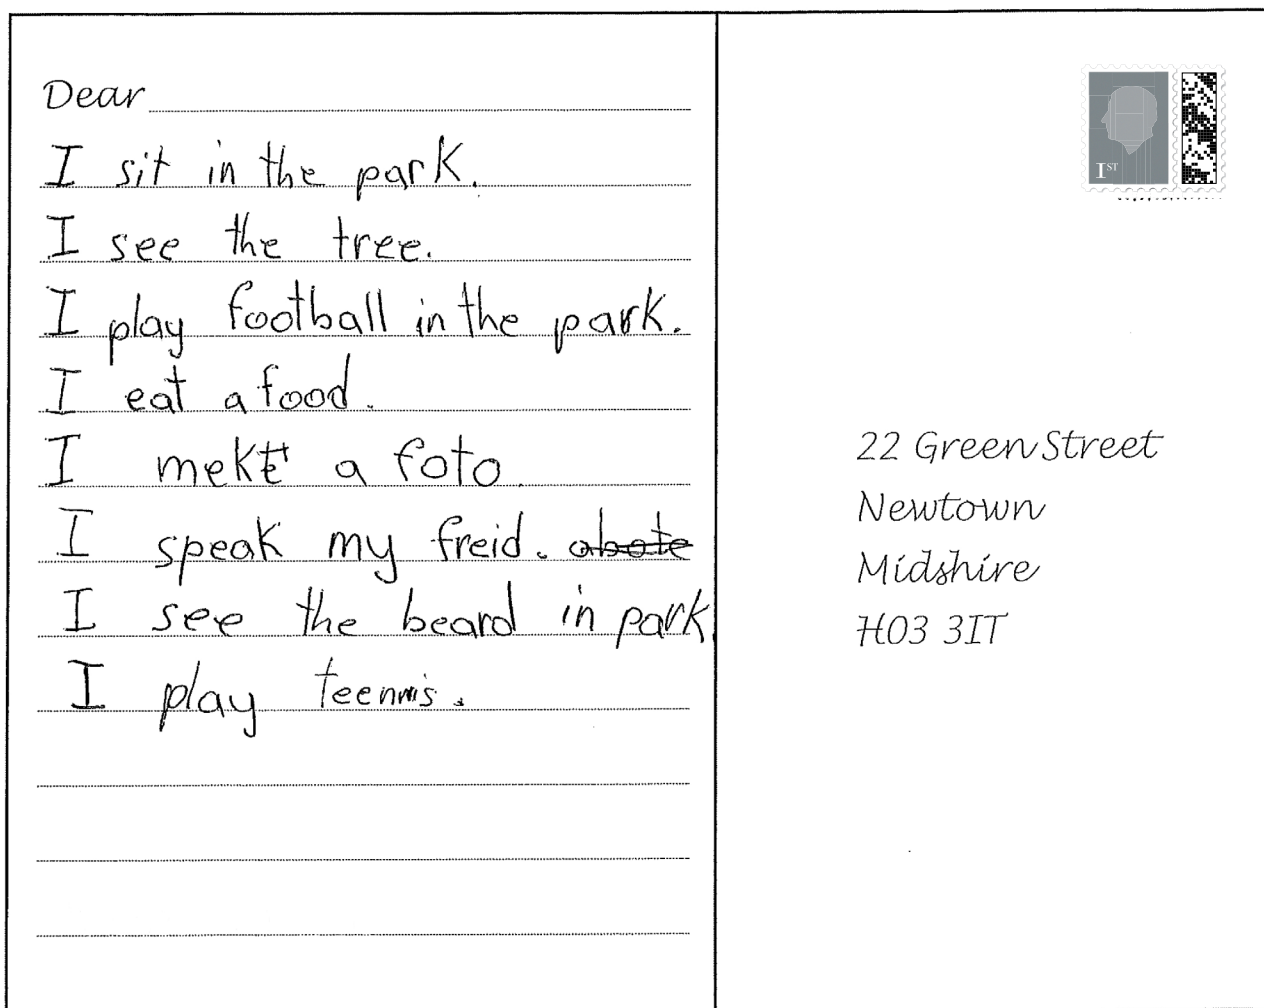 Dear
I sit in the park.
I see the tree.
I play football in the park.
I eat a food.
I meke a foto.
I speak my freid. abote
I see the beard in park.
I play teennis.
1ST
22 Green Street
Newtown
Midshire
H03 3IT